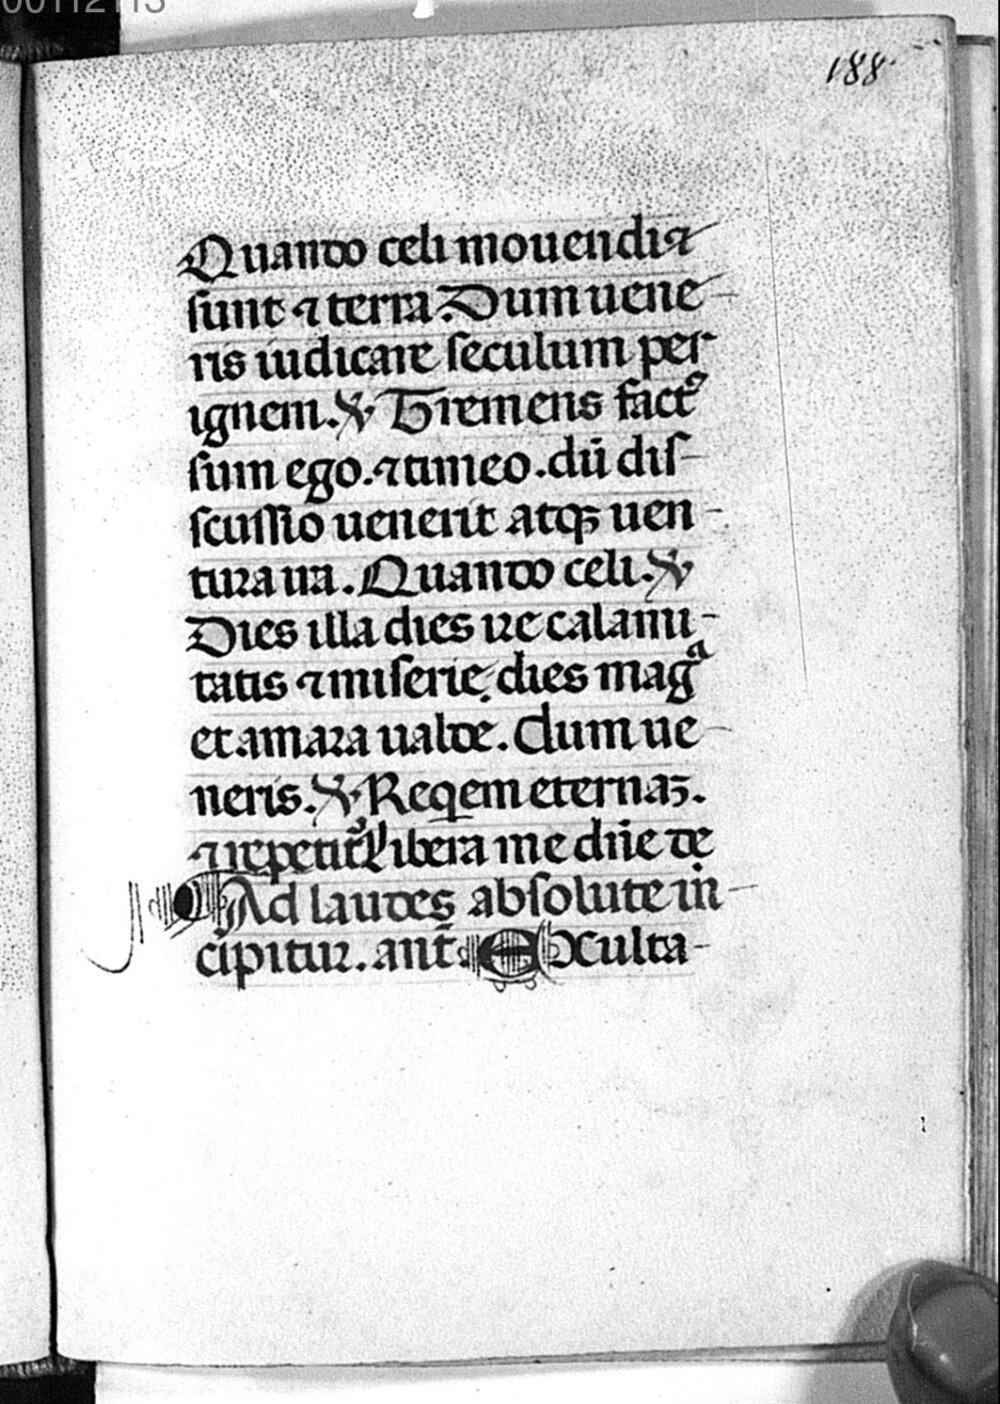 00112113
188
Quando celi mouendi
sunt ⁊ terra. Dum uene-
ris iudicare seculum per
ignem. ℣ Tremens factꝰ
sum ego. ⁊ timeo. dū dis-
scussio uenerit atqꝫ uen-
tura ira. Quando celi. ℣
Dies illa dies ire calami-
tatis ⁊ miserie. dies magᵃ
et amara ualde. dum ue-
neris. ℣ Reqem eternaꝫ.
⁊ repetit᷑ Libera me dn̄e de
Ad laudes absolute in-
cipitur. ant̄. Exulta-